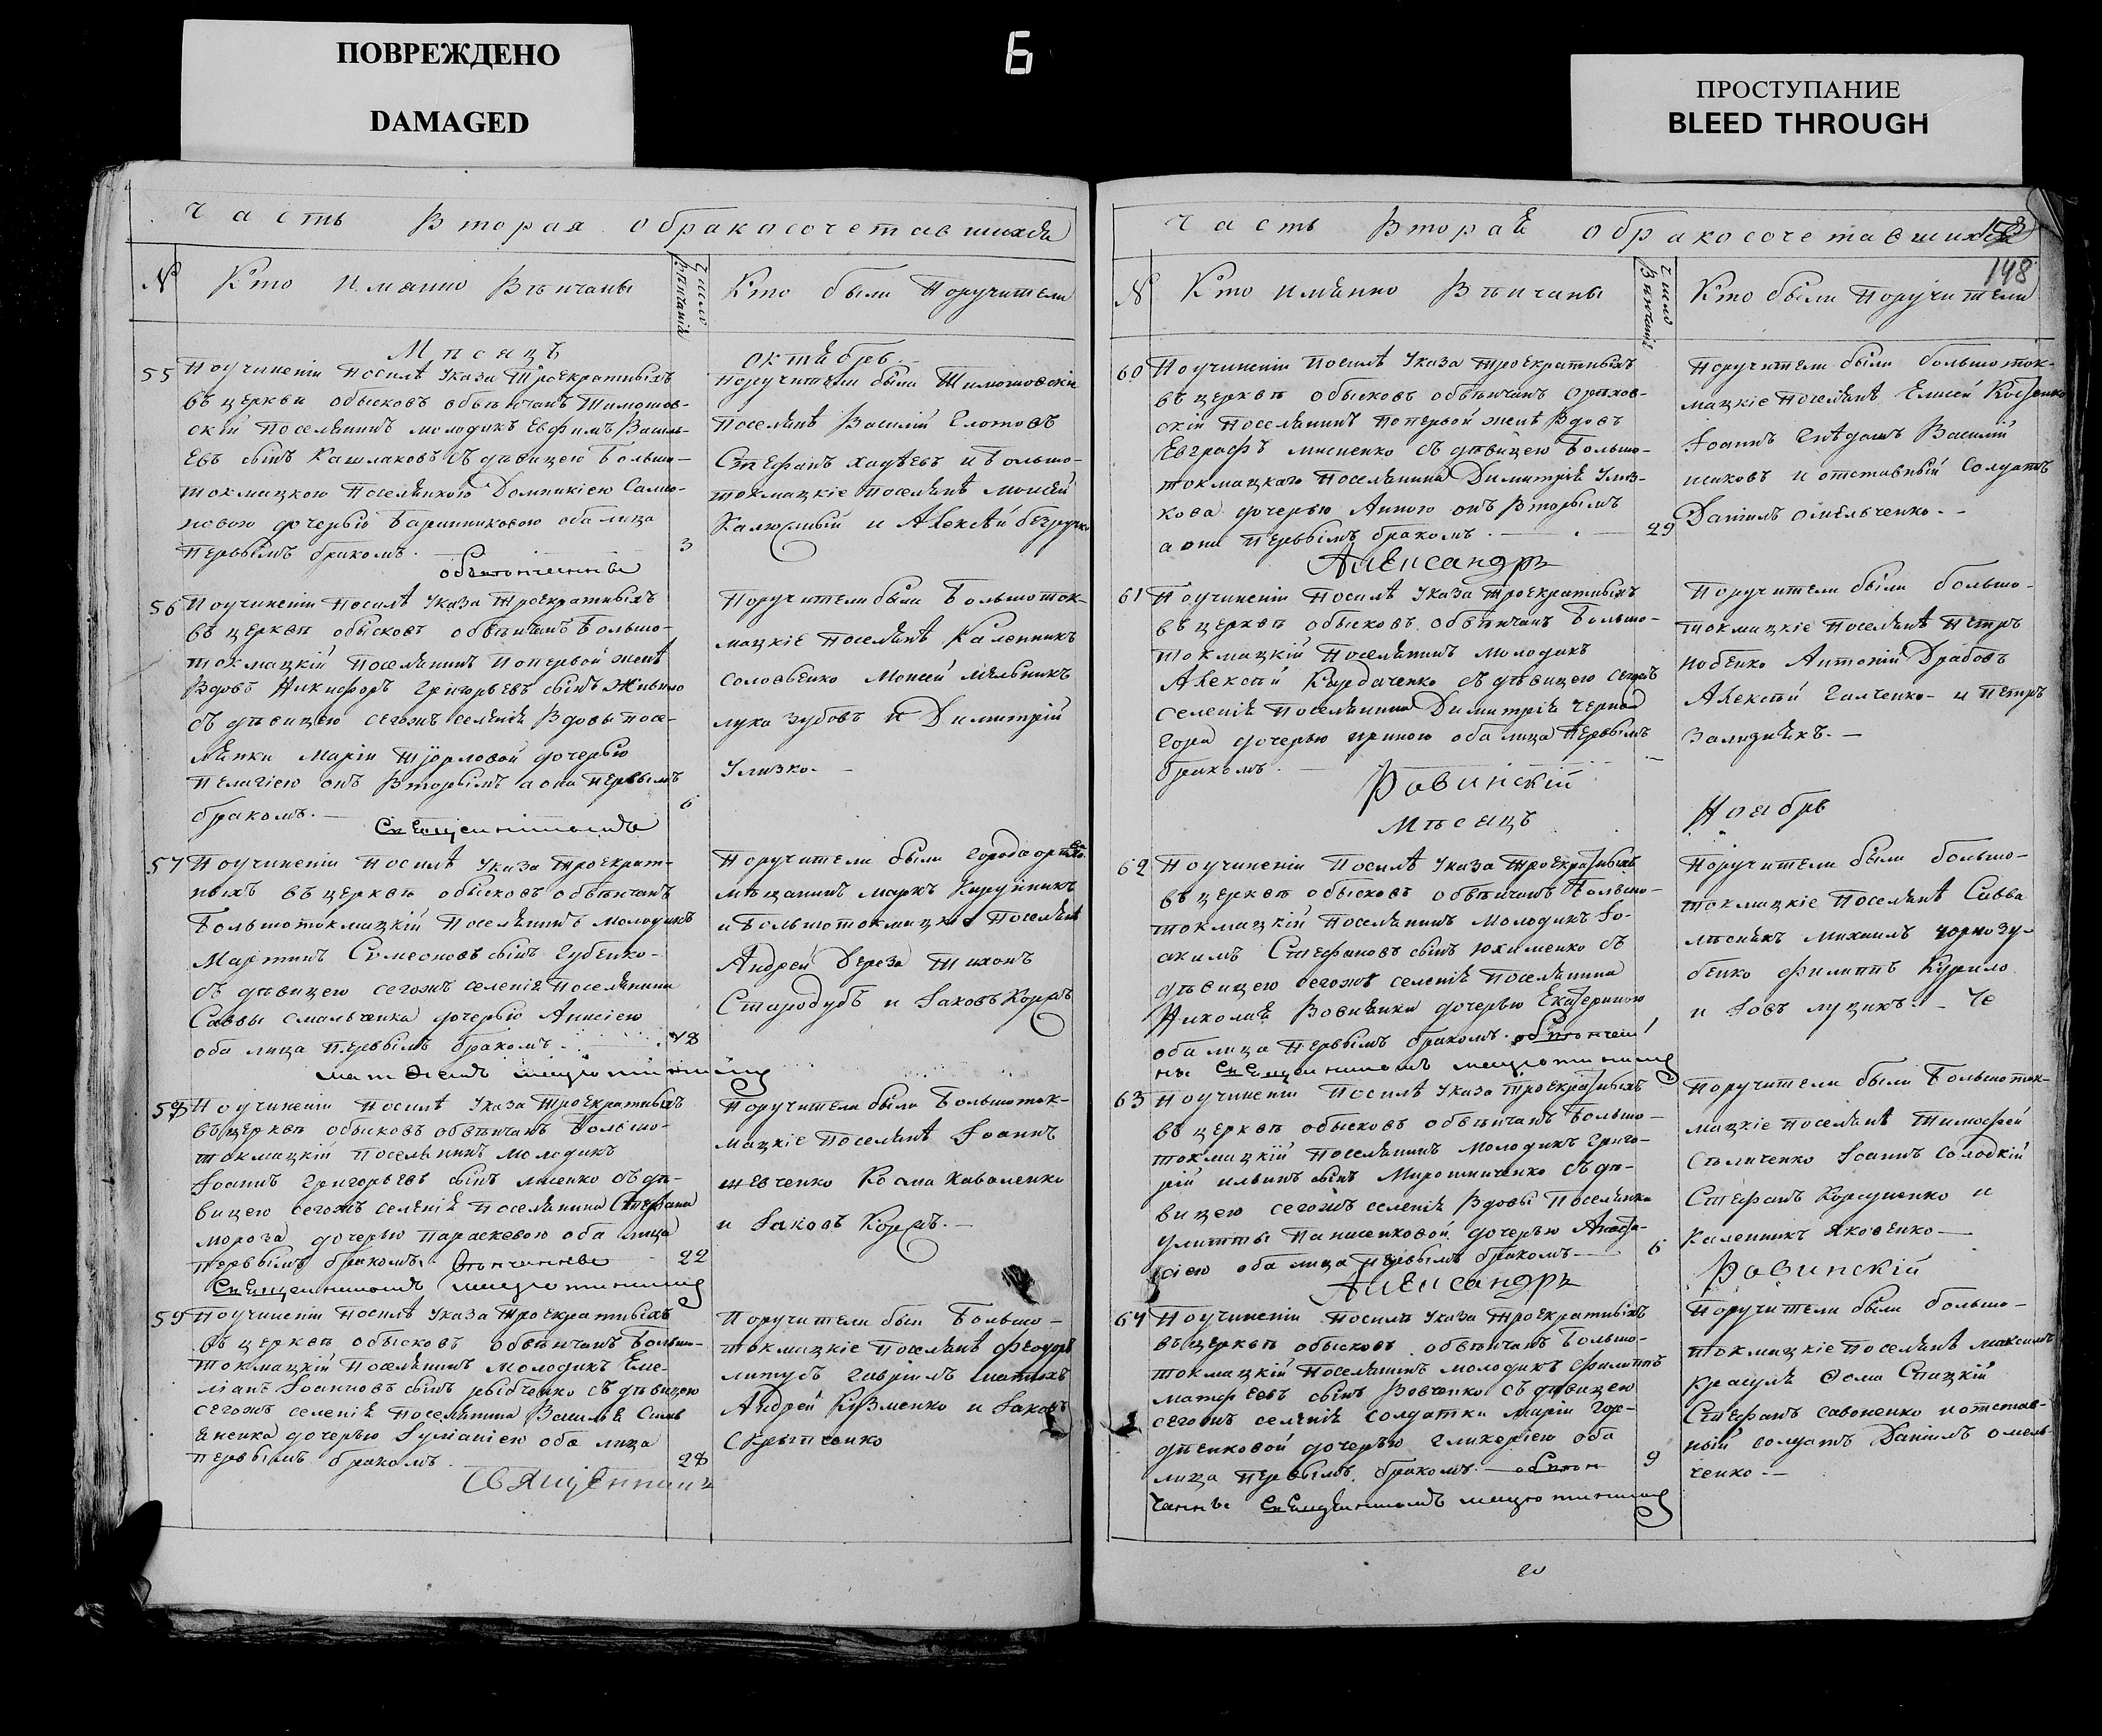 ПОВРЕЖДЕНО
DAMAGED
Б
ПРОСТУПАНИЕ
BLEED THROUGH
Часть Вторая обракосочетавшихся
№
Кто имянно Вѣнчаны
Число Вѣнчанія
Кто были Поручители
Мѣсяцъ
октябрь
55
Поучиненіи Посилѣ Указа Троекратныхъ
въ церкви обысковъ обвѣнчанъ Тимошов-
скій Поселянинъ молодикъ Евфимъ Василь-
евъ сынъ Кашлаковъ съ дѣвицею Больше-
токмацкою Поселянкою Домникіею Самсо-
новою дочерью Баранниковою оба лица
Первымъ бракомъ.
3
Поручители были Тимошовскіи
Поселянѣ Василій Глотовъ
Стефанъ Хадѣевъ и Больше-
токмацкіе Поселянѣ Моисей
Калюжный и Алексѣй безручко
56
Поучиненіи Посилѣ Указа Троекратныхъ
въ церквѣ обысковъ обвѣнчанъ Больше-
токмацкій Поселянинъ Попервой женѣ
Вдовъ Никифоръ Григорьевъ сынъ Живило
съ дѣвицею сегожъ селенія Вдовы посе-
лянки Маріи Тюрловой дочерью
Пелагіею онъ Вторымъ а она Первымъ
бракомъ.
6
Поручители были Большеток-
мацкіе Поселянѣ Каленникъ
Соловьенко Моисей Мельникъ
лука Зубовъ и Димитрій
Улизко.
Священникомъ
57
Поучиненіи Посилѣ Указа Троекрат-
ныхъ въ церквѣ обысковъ обвѣнчанъ
Большетокмацкій Поселянинъ Молодикъ
Мартинъ Симеоновъ сынъ Губенко
съ дѣвицею сегожъ селенія Поселянина
Саввы Смальченка дочерью Анисіею
оба лица Первымъ бракомъ
18
Поручители были города орѣхова
мѣщанинъ маркъ
и Большетокмацкіе Поселянѣ
Андрей Береза Тихонъ
Стародубъ и Іаковъ Коржъ
58
Поучиненіи Посилѣ Указа Троекратныхъ
въ церквѣ обысковъ обвѣнчанъ Больше-
токмацкій Поселянинъ молодикъ
Іоаннъ Григорьевъ сынъ Лисенко съ дѣ-
вицею сегожъ селенія Поселянина Стефана
Мороза дочерью Параскевою оба лица
Первымъ бракомъ. Вѣнчанные
22
Поручители были Большеток-
мацкіе Поселянѣ Іоаннъ
Шевченко Козма Коваленко
и Іаковъ Коржъ.
Священникомъ
59
Поучиненіи Посилѣ Указа Троекратныхъ
въ церквѣ обысковъ обвѣнчанъ Больше-
токмацкій Поселянинъ молодикъ Еме-
ліанъ Іоанновъ сынъ рыбченко съ дѣвицею
сегожъ селенія Поселянина Василья
дочерью Іуліаніею оба лица
Первымъ бракомъ.
28
Поручители были Больше-
токмацкіе Поселянѣ Феодоръ
Гавріилъ
Андрей Кузменко и Іаковъ
Скрыпченко
Священникъ
Часть Вторая обракосочетавшихся
148
№
Кто имянно Вѣнчаны
Число Вѣнчанія
Кто были Поручители
60
Поучиненіи Посилѣ Указа Троекратныхъ
въ церквѣ обысковъ обвѣнчанъ Орѣхов-
скій Поселянинъ Попервой женѣ Вдовъ
Евграфъ Мисненко съ дѣвицею Больше-
токмацкаго Поселянина Димитрія Улиз-
кова дочерью Анною онъ Вторымъ
а она Первымъ бракомъ.
29
Поручители были большеток-
мацкіе Поселянѣ Елисей
Іоаннъ Гнѣдашъ Василій
исаковъ и отставный Солдатъ
Даніилъ Омельченко.
Александръ
61
Поучиненіи Посилѣ Указа Троекратныхъ
въ церквѣ обысковъ обвѣнчанъ Больше-
токмацкій Поселянинъ молодикъ
Алексѣй Кардаченко съ дѣвицею сегожъ
селенія Поселянина Димитрія Черно-
гора дочерью ириною оба лица Первымъ
бракомъ.
Поручители были больше-
токмацкіе Поселянѣ Петръ
Антоній Драбовъ
Алексѣй Галченко и Петръ
Зализнякъ.
Равинскій
Мѣсяцъ
Ноябрь
62
Поучиненіи Посилѣ Указа Троекратныхъ
въ церквѣ обысковъ обвѣнчанъ Больше-
токмацкій Поселянинъ молодикъ Іо-
акимъ Стефановъ сынъ Юхименко съ
дѣвицею сегожъ селенія Поселянина
Николая Вовнянки дочерью Екатериною
оба лица Первымъ бракомъ. обвѣнчан-
ны Священникомъ
Поручители были больше-
токмацкіе Поселянѣ Савва
лѣснякъ михаилъ чорнозу-
бенко филиппъ Курило
и Іовъ луцикъ.
63
Поучиненіи Посилѣ Указа Троекратныхъ
въ церквѣ обысковъ обвѣнчанъ Больше-
токмацкій Поселянинъ Молодикъ Григо-
рій ильинъ сынъ Мирошниченко съ дѣ-
вицею сегожъ селенія Вдовы Поселянки
улитты Панисенковой дочерью Анаста-
сіею оба лица Первымъ бракомъ.
6
Поручители были Большеток-
мацкіе Поселянѣ Тимофей
Іоаннъ Солодкій
Стефанъ Корсуненко и
Каленникъ Яковенко
Александръ
Равинскій
64
Поучиненіи Посилѣ Указа Троекратныхъ
въ церквѣ обысковъ обвѣнчанъ Больше-
токмацкій Поселянинъ молодикъ Филиппъ
матфѣевъ сынъ Вовченко съ дѣвицею
сегожъ селенія солдатки Маріи Гор-
дѣенковой дочерью Гликеріею оба
лица Первымъ бракомъ. обвѣн-
чанны Священникомъ
9
Поручители были больше-
токмацкіе Поселянѣ Максимъ
Красуля Фома Спацкій
Стефанъ савоненко и отстав-
ный солдатъ Даніилъ омель-
ченко.